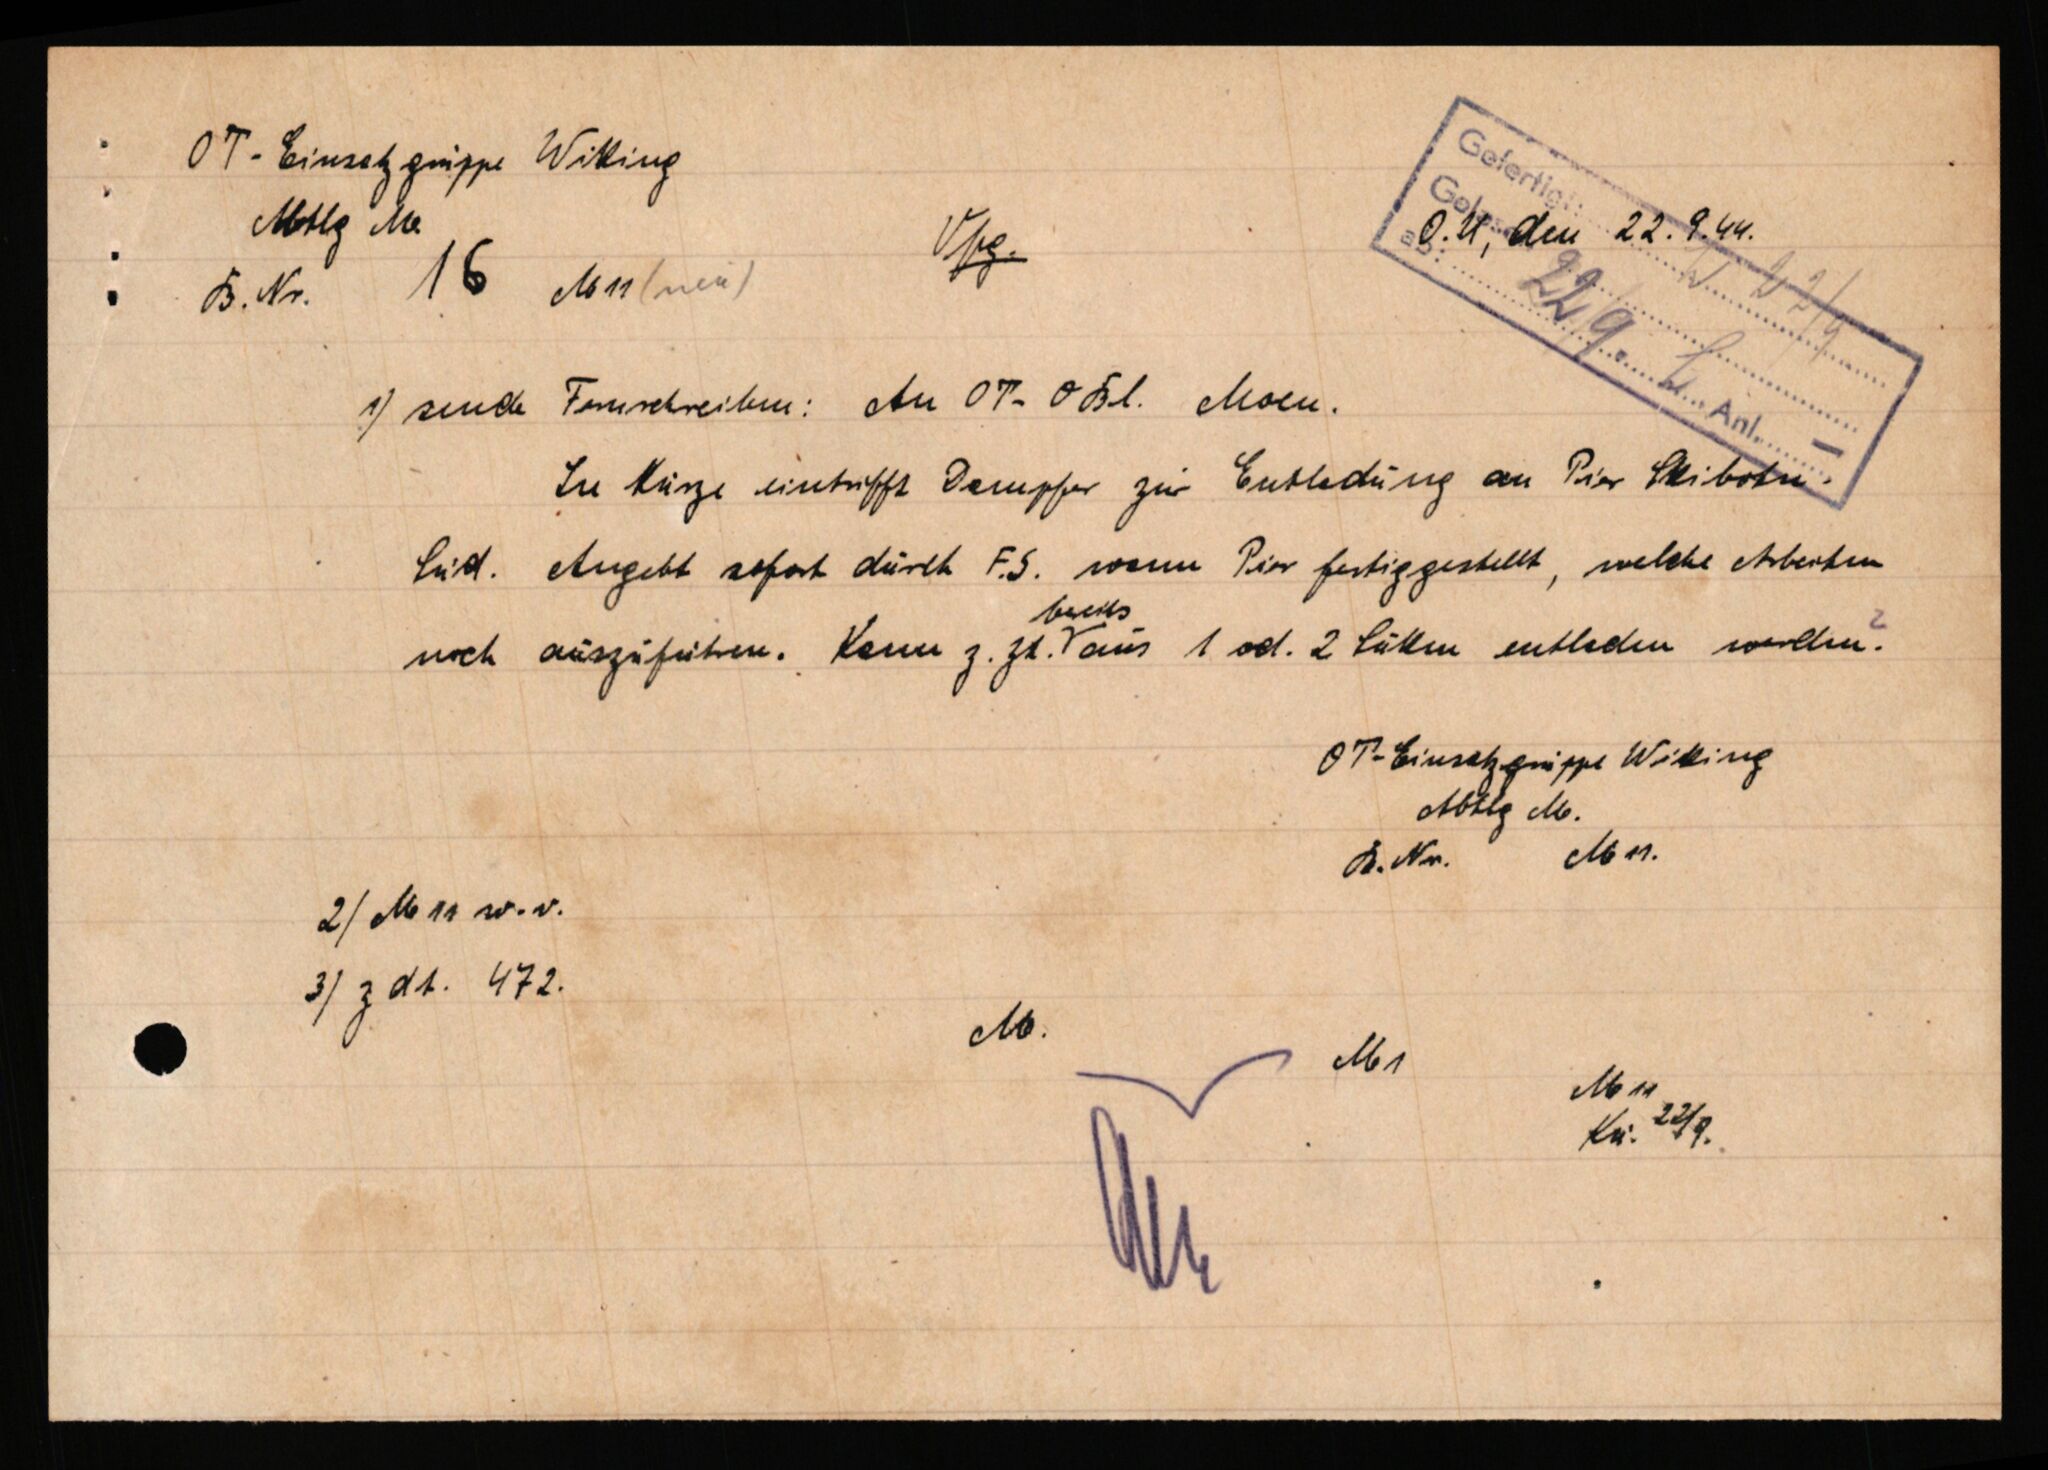 OT-Einsatzgruppe Wiking
Abtlg M.
B.Nr. 16 M11 (neu)
Vfg.
O.U, den 22.9.44.
Gefertigt: 22/9
Geles
ab: 22/9. Anl. —
1) sende Fernschreiben: An OT-OBl. Moen.
In Kürze eintrifft Dampfer zur Entladung an Pier Skibotn-
Süd. Angebt sofort durch F.S. wann Pier fertiggestellt, welche Arbeiten
noch auszuführen. Kann z.Zt. bereits aus 1 od. 2 Luken entladen werden?
OT-Einsatzgruppe Wiking
Abtlg M.
B.Nr. M11.
2) M11 w.v.
3) z dA. 472.
M.
M1
M11
Kü. 22/9.